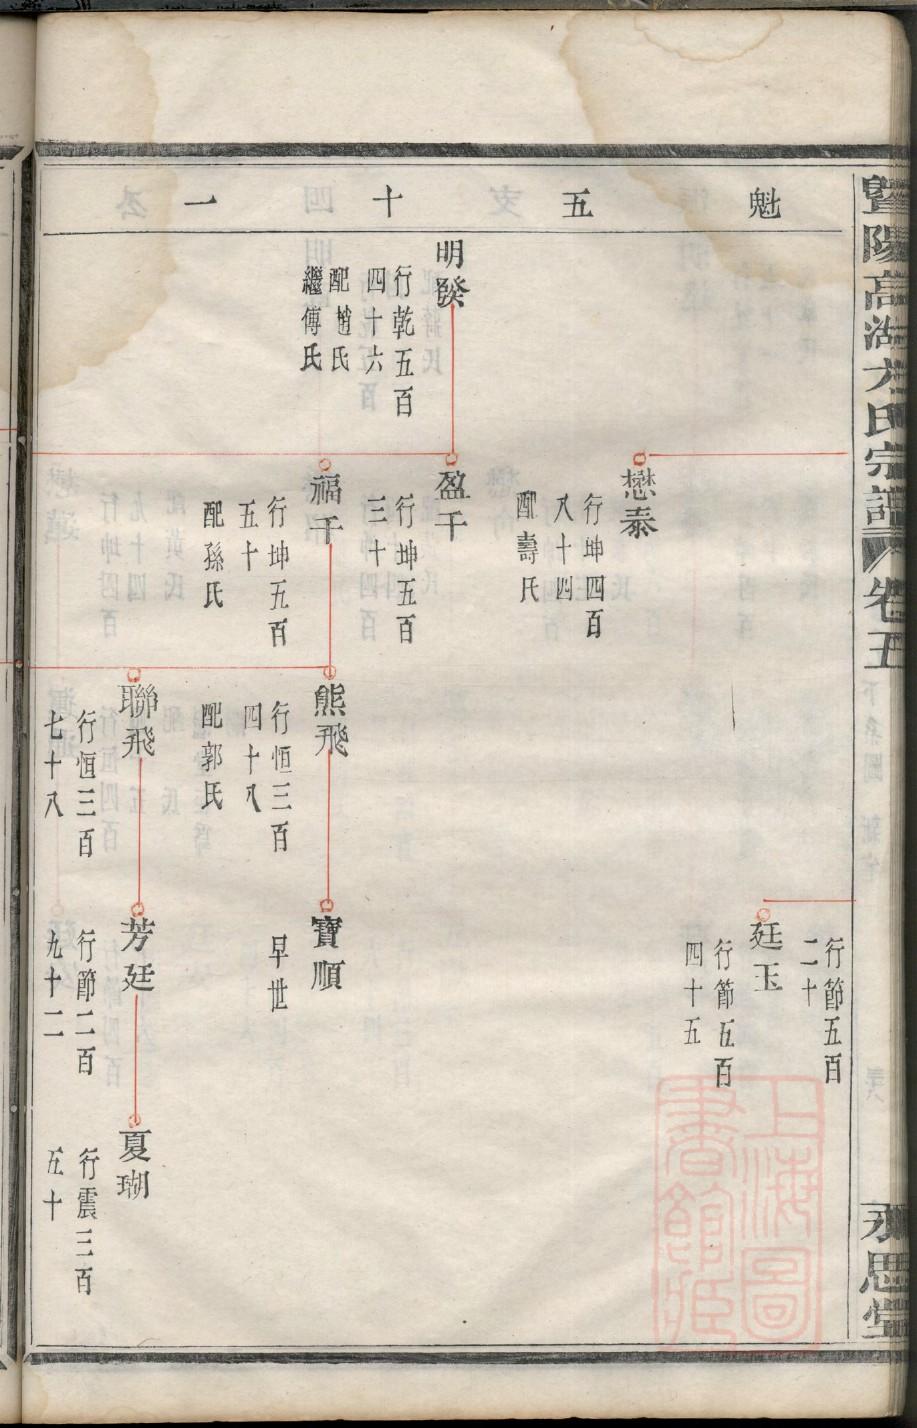 暨陽高湖方氏宗譜
卷五
下系圖
永思堂
魁五十一
行節五百
二十
廷玉
行節五百
四十五
懋泰
行坤四百
八十四
配壽氏
明發
行乾五百
四十六
配趙氏
繼傅氏
盈千
行坤五百
三十
福千
行坤五百
五十
配孫氏
熊飛
行恒三百
四十八
配郭氏
寶順
早世
聯飛
行恒三百
七十八
芳廷
行節二百
九十二
夏瑚
行震三百
五十
上海圖
書館藏